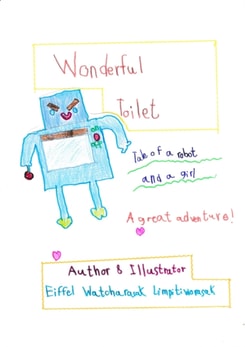 Wonderful
Toilet
Tale of a robot
and a girl
A great adventure!
Author & Illustrator
Eiffel Watcharasak Limpitiwomsak